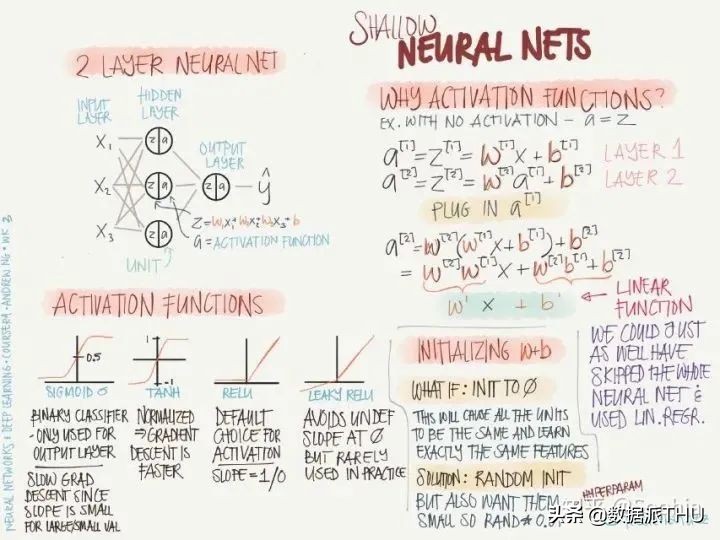 SHALLOW
NEURAL NETS
2 LAYER NEURAL NET
INPUT LAYER
HIDDEN LAYER
OUTPUT LAYER
X₁
X₂
X₃
z a
z a
z a
z a
ŷ
Z = W₁X₁ + W₂X₂ + W₃X₃ + b
a = ACTIVATION FUNCTION
UNIT
WHY ACTIVATION FUNCTIONS?
EX. WITH NO ACTIVATION – a = Z
a[1] = Z[1] = W[1]X + b[1] LAYER 1
a[2] = Z[2] = W[2]a[1] + b[2] LAYER 2
PLUG IN a[1]
a[2] = W[2](W[1]X + b[1]) + b[2]
= W[2]W[1]X + W[2]b[1] + b[2]
W' X + b'
LINEAR
FUNCTION
WE COULD JUST
AS WELL HAVE
SKIPPED THE WHOLE
NEURAL NET &
USED LIN. REGR.
ACTIVATION FUNCTIONS
0.5
SIGMOID σ
BINARY CLASSIFIER
- ONLY USED FOR
OUTPUT LAYER
SLOW GRAD
DESCENT SINCE
SLOPE IS SMALL
FOR LARGE/SMALL VAL
1
-1
TANH
NORMALIZED
⇒ GRADIENT
DESCENT IS
FASTER
RELU
DEFAULT
CHOICE FOR
ACTIVATION
SLOPE = 1/0
LEAKY RELU
AVOIDS UNDEF
SLOPE AT 0
BUT RARELY
USED IN PRACTICE
INITIALIZING W+b
WHAT IF: INIT TO 0
THIS WILL CAUSE ALL THE UNITS
TO BE THE SAME AND LEARN
EXACTLY THE SAME FEATURES
SOLUTION: RANDOM INIT
BUT ALSO WANT THEM
SMALL SO RAND *
HYPERPARAM
NEURAL NETWORKS & DEEP LEARNING · COURSERA · ANDREW NG · WK 3
头条 @数据派THU